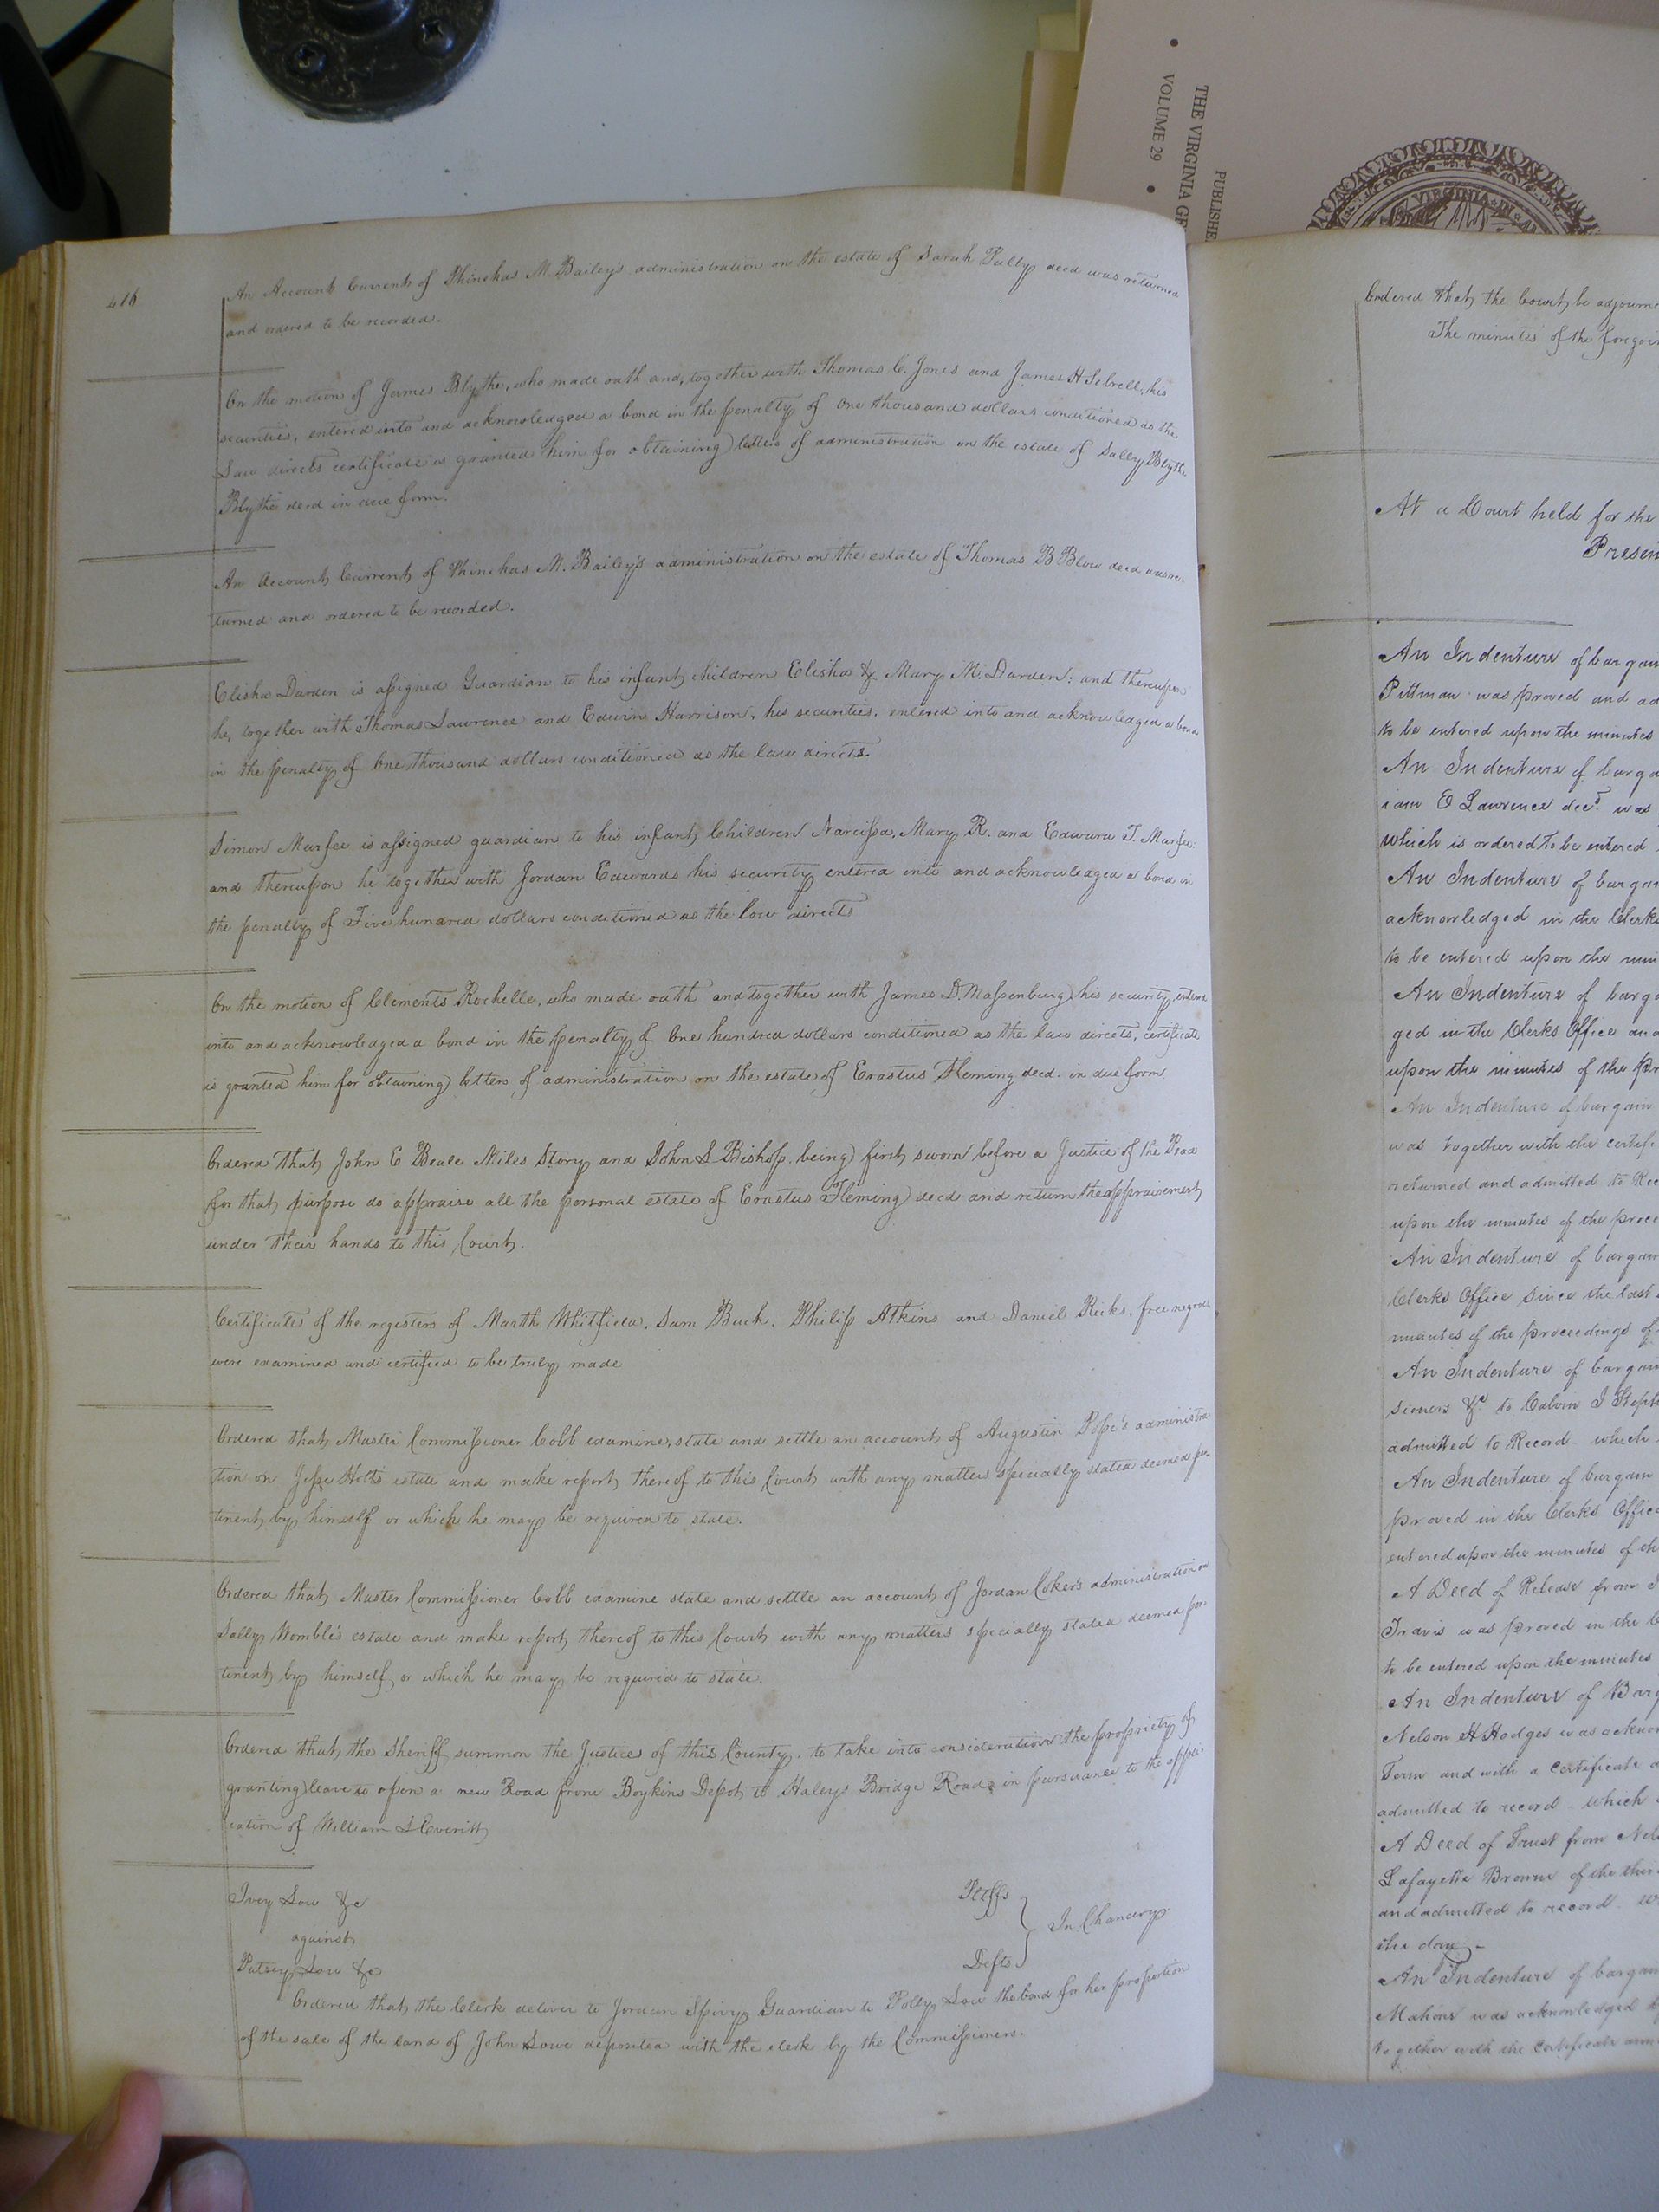 416
An Account Current of Phinehas M. Bailey's administration on the estate of Sarah Pully decd was returned
and ordered to be recorded.
On the motion of James Blythe, who made oath and, together with Thomas C. Jones and James H Sebrell, his
securities, entered into and acknowledged a bond in the penalty of One thousand dollars conditioned as the
Law directs certificate is granted him for obtaining letters of administration on the estate of Sally Blythe
Blythe decd in due form.
An Account Current of Phinehas M. Bailey's administration on the estate of Thomas B Blow decd was re-
turned and ordered to be recorded.
Elisha Darden is assigned Guardian to his infant children Elisha & Mary M. Darden: and thereupon
he, together with Thomas Lawrence and Edwin Harrison, his securities, entered into and acknowledged a bond
in the penalty of One thousand dollars conditioned as the law directs.
Simon Murfee is assigned guardian to his infant Children Narcissa, Mary R. and Edward T. Murfee:
and thereupon he together with Jordan Edwards his security entered into and acknowledged a bond in
the penalty of Five hundred dollars conditioned as the law directs
On the motion of Clements Rochelle, who made oath and together with James D. Massenburg his security, entered
into and acknowledged a bond in the penalty of One hundred dollars conditioned as the law directs, certificate
is granted him for obtaining letters of administration on the estate of Erastus Fleming decd. in due form
Ordered that John E Beale Miles Story and John S Bishop being first sworn before a Justice of the Peace
for that purpose do appraise all the personal estate of Erastus Fleming decd and return the appraisement
under their hands to this Court.
Certificates of the registers of Marth Whitfield, Sam Buck, Philip Atkins and Daniel Ricks, free negroes
were examined and certified to be truly made
Ordered that Master Commissioner Cobb examine, state and settle an account of Augustin Pope's administra
tion on Jesse Holts estate and make report thereof to this Court with any matters specially stated deemed per
tinent by himself or which he may be required to state.
Ordered that Master Commissioner Cobb examine state and settle an account of Jordan Coker's administration on
Sally Womble's estate and make report thereof to this Court with any matters specially stated deemed per
tinent by himself or which he may be required to state.
Ordered that the Sheriff summon the Justices of this County, to take into consideration the propriety of
granting leave to open a new Road from Boykins Depot to Haleys Bridge Road in pursuance to the appli
cation of William Everitt
Ivey Low &c Pltffs
against In Chancery
Patsey Low &c Defts
Ordered that the Clerk deliver to Jordan Spivy Guardian to Polly Low the bond for her proportion
of the sale of the land of John Lowe deposited with the clerk by the Commissioners.
PUBLISHE
THE VIRGINIA GE
VOLUME 29
VIRGINIA IN
Ordered that the Court be adjourne
The minutes of the foregoi
At a Court held for the
Presen
An Indenture of bargain
Pittman was proved and ad
to be entered upon the minutes
An Indenture of barga
iam E Lawrence decd was
which is ordered to be entered
An Indenture of bargai
acknowledged in the Clerks
to be entered upon the min
An Indenture of barga
ged in the Clerks Office and
upon the minutes of the pr
An Indenture of bargain
was together with the certifi
returned and admitted to Rec
upon the minutes of the proce
An Indenture of bargain
Clerks Office since the last
minutes of the proceedings of
An Indenture of bargain
sioners &c to Calvin J Steph
admitted to Record which
An Indenture of bargain
proved in the Clerks Office
entered upon the minutes of th
A Deed of Release from
Travis was proved in the C
to be entered upon the minutes
An Indenture of Barg
Nelson H Hodges was acknow
Term and with a Certificate a
admitted to record which
A Deed of Trust from Nels
Lafayette Browne of the thir
and admitted to record w
the day
An Indenture of bargain
Mahone was acknowledged
together with the Certificate ann